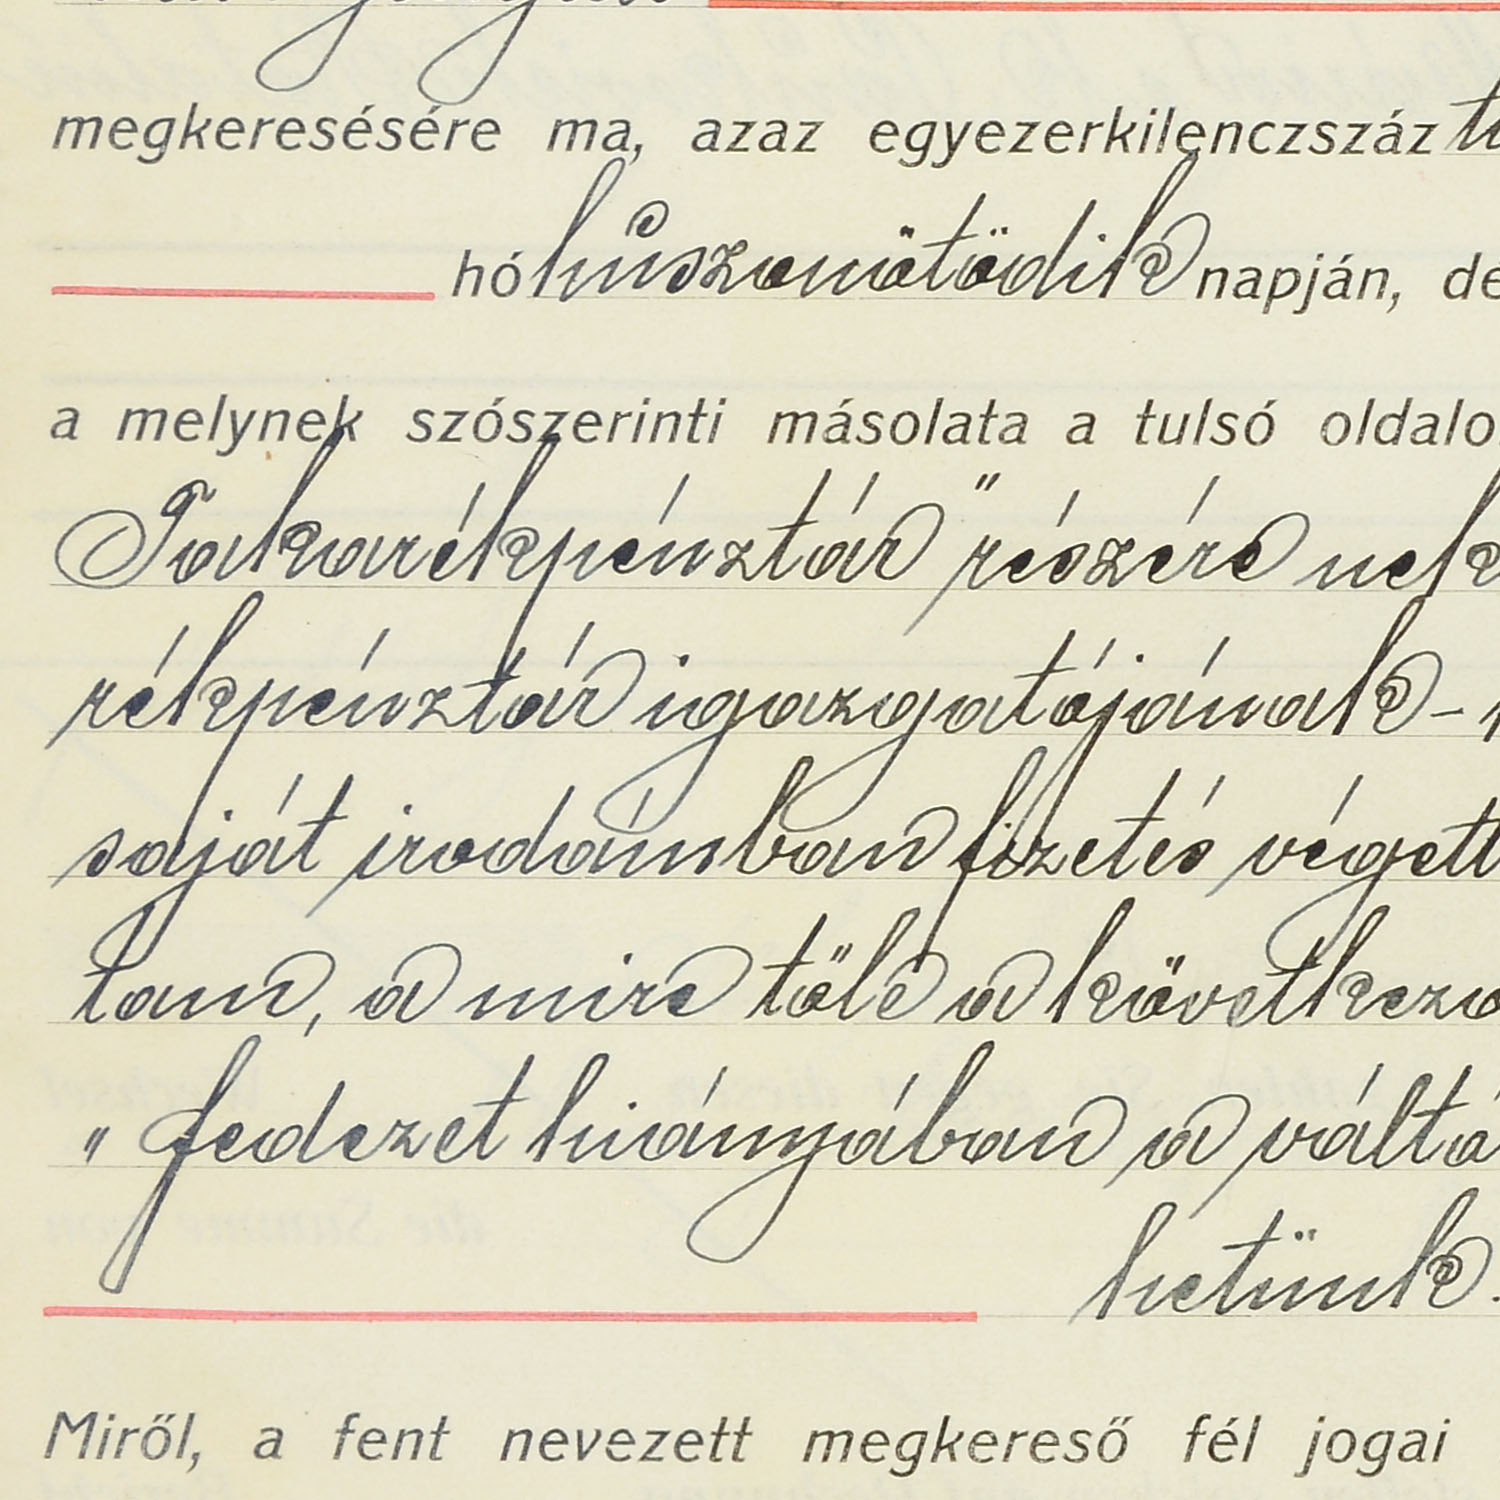 megkeresésére ma, azaz egyezerkilenczszáz
hó huszonötödik napján, dé
a melynek szószerinti másolata a tulsó oldalo
Takarékpénztár" részére nek
rékpénztár igazgatójának -
saját irodámban fizetés végett
tam, a mire tőle a következő
" fedezet hiányában a váltó
hetünk.
Miről, a fent nevezett megkereső fél jogai